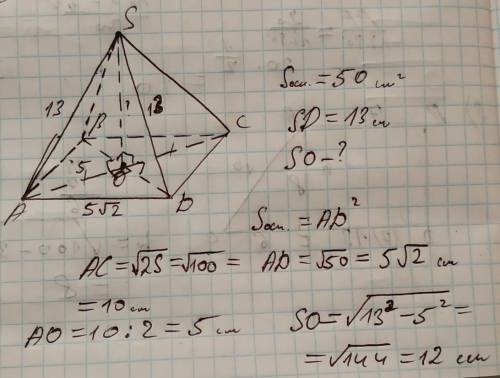 S
13
13
B
C
5
O
A
5√2
D
Sосн. = 50 см²
SD = 13 см
SO - ?
Sосн. = AD²
AC = √2S = √100 =
= 10 см
AD = √50 = 5√2 см
AO = 10 : 2 = 5 см
SO = √13² - 5² =
= √144 = 12 см